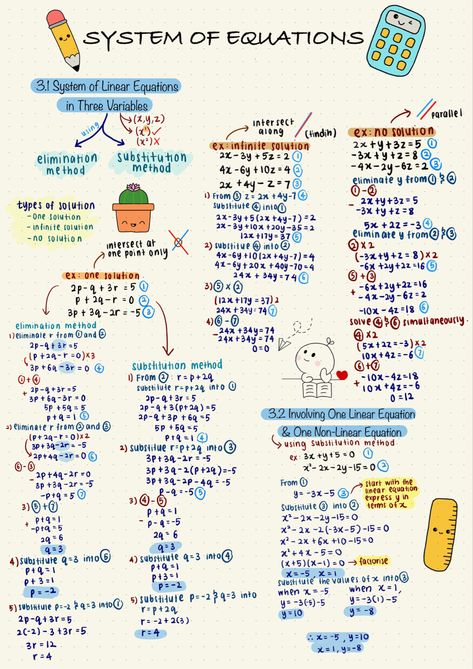 SYSTEM OF EQUATIONS
3.1 System of Linear Equations
in Three Variables
(x,y,z)
(x¹) ✓
(x²) ✗
using
elimination
method
substitution
method
types of solution
- one solution
- infinite solution
- no solution
intersect at
one point only
ex: one solution
2p-q+3r = 5 ①
p+2q-r = 0 ②
3p+3q-2r = -5 ③
elimination method
1) eliminate r from ① and ②
2p-q+3r=5
(p+2q-r=0)×3
3p+6q-3r=0 ④
①+④
2p-q+3r=5
+ 3p+6q-3r=0
5p+5q=5
p+q=1 ④
2) eliminate r from ② and ③
(p+2q-r=0)×2
3p+3q-2r=-5
2p+4q-2r=0 ⑥
⑥-③
2p+4q-2r=0
- 3p+3q-2r=-5
-p+q=5 ⑦
3) ⑤+⑦
p+q=1
+ -p+q=5
2q=6
q=3
4) substitute q=3 into ⑤
p+q=1
p+3=1
p=-2
5) substitute p=-2 & q=3 into ①
2p-q+3r=5
2(-2)-3+3r=5
3r=12
r=4
substitution method
1) From ②: r=p+2q
substitute r=p+2q into ①
2p-q+3r=5
2p-q+3(p+2q)=5
2p-q+3p+6q=5
5p+5q=5
p+q=1 ④
2) substitute r=p+2q into ③
3p+3q-2r=-5
3p+3q-2(p+2q)=-5
3p+3q-2p-4q=-5
p-q=-5 ⑤
3) ④-⑤
p+q=1
- p-q=-5
2q=6
q=3
4) substitute q=3 into ④
p+q=1
p+3=1
p=-2
5) substitute p=-2 & q=3 into ②
r=p+2q
r=-2+2(3)
r=4
intersect
along
(tindih)
ex: infinite solution
2x-3y+5z=2 ①
4x-6y+10z=4 ②
2x+4y-z=7 ③
1) From ③ z=2x+4y-7 ④
substitute ④ into ①
2x-3y+5(2x+4y-7)=2
2x-3y+10x+20y-35=2
12x+17y=37 ⑤
2) substitute ④ into ②
4x-6y+10(2x+4y-7)=4
4x-6y+20x+40y-70=4
24x+34y=74 ⑥
3) ⑤×2
(12x+17y=37)2
24x+34y=74 ⑦
4) ⑥-⑦
24x+34y=74
- 24x+34y=74
0=0
parallel
ex: no solution
2x+y+3z=5 ①
-3x+y+z=8 ②
-4x-2y-6z=2 ③
eliminate y from ① & ②
①-②
2x+y+3z=5
- -3x+y+z=8
5x+2z=-3 ④
eliminate y from ② & ③
②×2
-6x+2y+2z=16 ⑤
⑤+③
-6x+2y+2z=16
+ -4x-2y-6z=2
-10x-4z=18 ⑥
solve ④ & ⑥ simultaneously
④×2
(5x+2z=-3)×2
10x+4z=-6 ⑦
⑥+⑦
-10x-4z=18
+ 10x+4z=-6
0=12
3.2 Involving One Linear Equation
& One Non-Linear Equation
using substitution method
ex: 3x+y+5=0 ①
x²-2x-2y-15=0 ②
From ①
y=-3x-5 ③
start with the
linear equation
express y in
terms of x
Substitute ③ into ②
x²-2x-2y-15=0
x²-2x-2(-3x-5)-15=0
x²-2x+6x+10-15=0
x²+4x-5=0
(x+5)(x-1)=0
factorise
x=-5, x=1
Substitute the values of x into ③
when x=-5,
y=-3(-5)-5
y=10
when x=1,
y=-3(1)-5
y=-8
∴ x=-5, y=10
x=1, y=-8